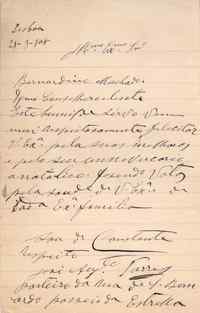 Lisboa
28-3-908
Illmo Exmo Snr
Bernardino Machado
Este humilde servo vem
mui respeitosamente felicitar
V Exa pelas suas melhoras
e pelo seu anniversario
natalicio fazendo votos
pela saude de V Exa e de
toda Exa familia
Sou de Constante
respeito
José Augto
porteiro da Rua de S. Bern
ardo possecia da Estrella